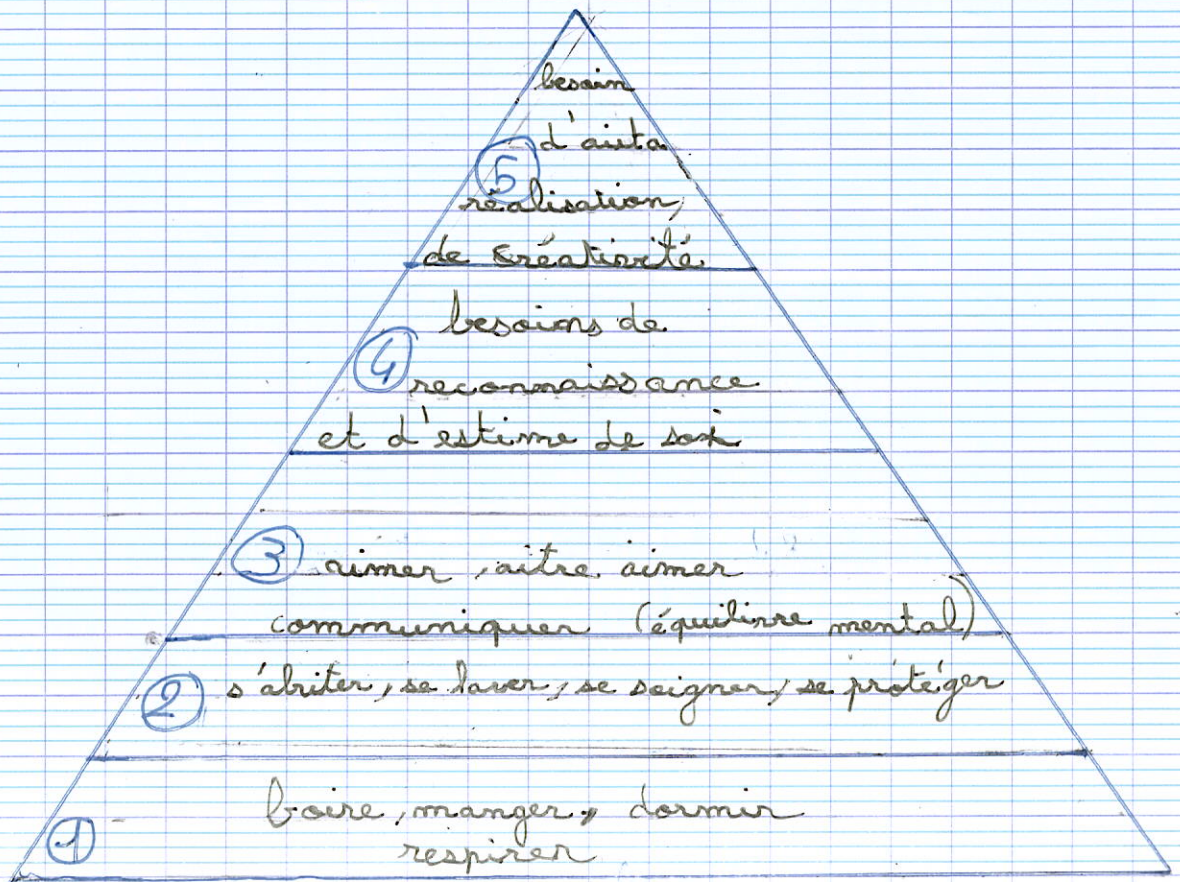 besoin
d'auto
5
réalisation,
de créativité
besoins de
4
reconnaissance
et d'estime de soi
3 aimer, aitre aimer
communiquer (équilinre mental)
2 s'abriter, se laver, se soigner, se protéger
boire, manger, dormir
1
respirer